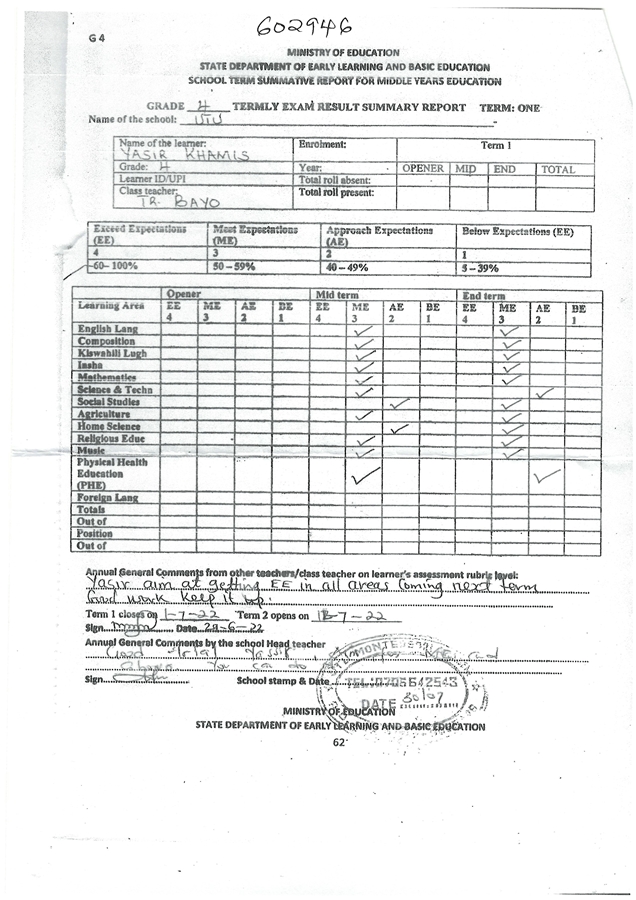 602946
G4
MINISTRY OF EDUCATION
STATE DEPARTMENT OF EARLY LEARNING AND BASIC EDUCATION
SCHOOL TERM SUMMATIVE REPORT FOR MIDDLE YEARS EDUCATION
GRADE 4 TERMLY EXAM RESULT SUMMARY REPORT TERM: ONE
Name of the school:
Name of the learner: Enrolment: Term 1
YASIR KHAMIS
Grade: 4 Year: OPENER MID END TOTAL
Learner ID/UPI Total roll absent:
Class teacher: Total roll present:
TR. BAYO
Exceed Expectations (EE) Meet Expectations (ME) Approach Expectations (AE) Below Expectations (EE)
4 3 2 1
60–100% 50–59% 40–49% 5–39%
Opener Mid term End term
Learning Area EE ME AE BE EE ME AE BE EE ME AE BE
4 3 2 1 4 3 2 1 4 3 2 1
English Lang ✓ ✓
Composition ✓ ✓
Kiswahili Lugh ✓ ✓
Insha ✓ ✓
Mathematics ✓ ✓
Science & Techn ✓ ✓
Social Studies ✓ ✓
Agriculture ✓ ✓
Home Science ✓ ✓
Religious Educ ✓ ✓
Music ✓ ✓
Physical Health
Education ✓ ✓
(PHE)
Foreign Lang
Totals
Out of
Position
Out of
Annual General Comments from other teachers/class teacher on learner's assessment rubric level:
Yasir aim at getting EE in all areas coming next term
Good work keep it up.
Term 1 closes on 1-7-22 Term 2 opens on 18-7-22
Sign Date 29-6-22
Annual General Comments by the school Head teacher
Sign School stamp & Date
TEL: 0705642543
DATE 30/07
MINISTRY OF EDUCATION
STATE DEPARTMENT OF EARLY LEARNING AND BASIC EDUCATION
62